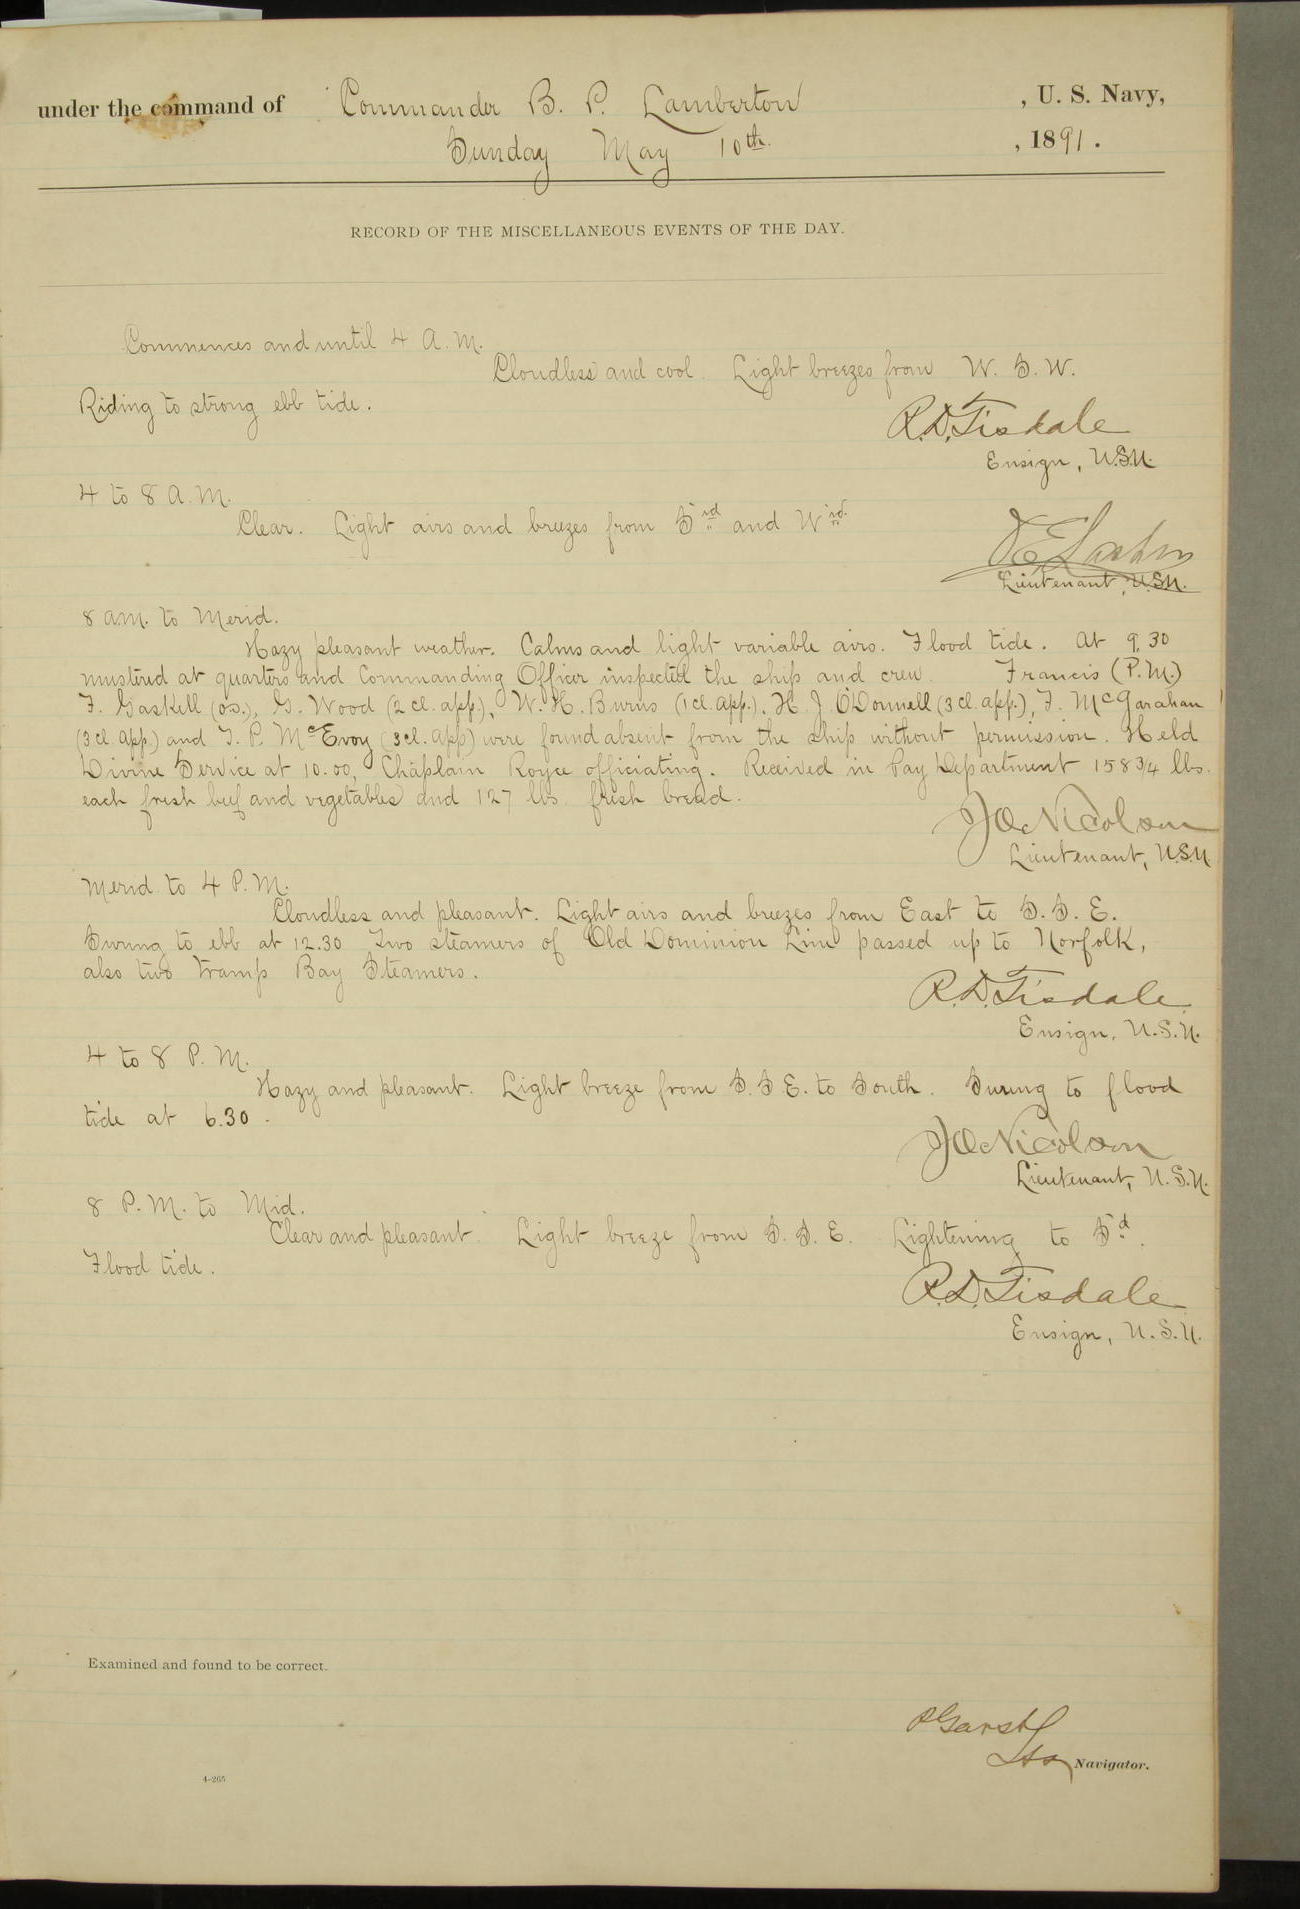 under the command of Commander B. P. Lamberton, U. S. Navy,
Sunday May 10th, 1891.
RECORD OF THE MISCELLANEOUS EVENTS OF THE DAY.
Commences and until 4 A.M.
Cloudless and cool. Light breezes from W. S. W.
Riding to strong ebb tide.
R. D. Tisdale
Ensign, U.S.N.
4 to 8 A.M.
Clear. Light airs and breezes from S'rd and W'rd.
Lieutenant, U.S.N.
8 am. to Merid.
Hazy pleasant weather. Calms and light variable airs. Flood tide. At 9.30
mustered at quarters and Commanding Officer inspected the ship and crew. Francis (P.M.)
F. Gaskell (o.s.), G. Wood (2 cl. app.), W. H. Burns (1 cl. app.), H. J. O'Donnell (3 cl. app.), F. McGarahan
(3 cl. App.) and T. P. McEvoy (3 cl. App) were found absent from the ship without permission. Held
Divine Service at 10.00, Chaplain Royce officiating. Received in Pay Department 158 3/4 lbs.
each fresh beef and vegetables and 127 lbs. fresh bread.
J O Nicolson
Lieutenant, U.S.N.
Merid to 4 P.M.
Cloudless and pleasant. Light airs and breezes from East to S. S. E.
Swung to ebb at 12.30 Two steamers of Old Dominion Line passed up to Norfolk,
also two tramp Bay Steamers.
R. D. Tisdale
Ensign, U.S.N.
4 to 8 P. M.
Hazy and pleasant. Light breeze from S. S. E. to South. Swung to flood
tide at 6.30.
J O Nicolson
Lieutenant, U.S.N.
8 P.M. to Mid.
Clear and pleasant. Light breeze from S. S. E. Lightening to S'd.
Flood tide.
R. D. Tisdale
Ensign, U.S.N.
Examined and found to be correct.
P Garst
Navigator.
4-265